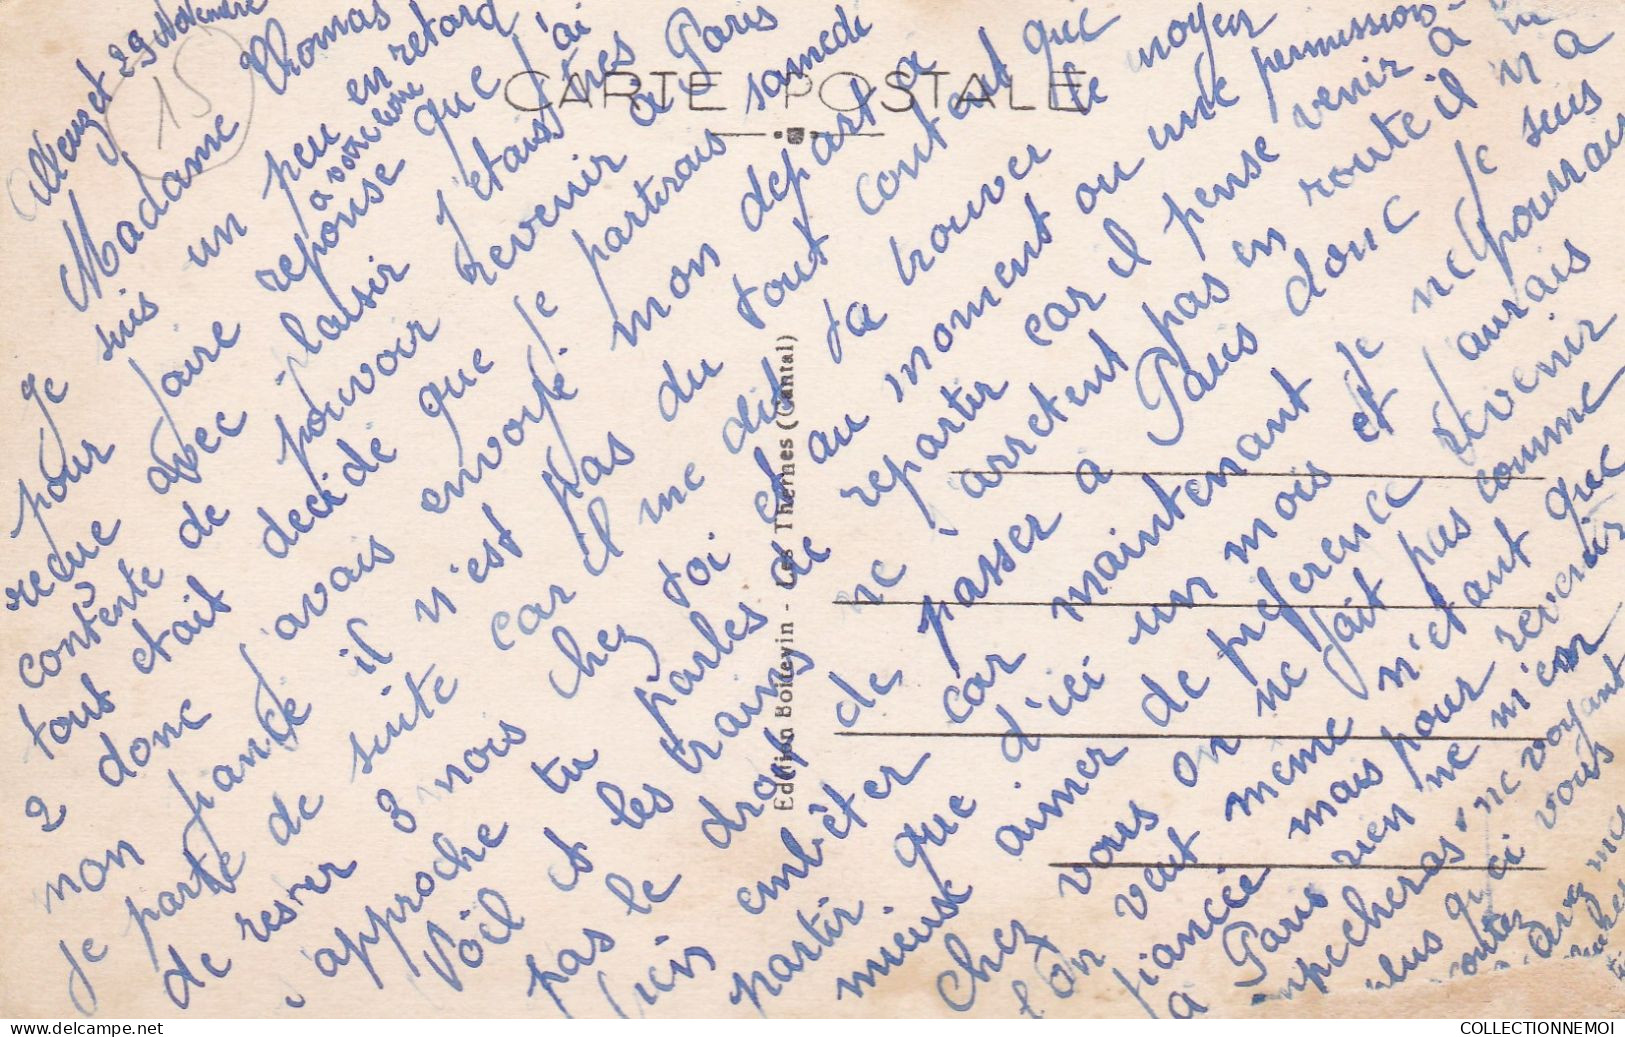 CARTE POSTALE
Edition Boiteyin - Les Thernes (Cantal)
15
29 Novembre
Madame Thomas
Je suis un peu en retard
à votre lettre
pour faire reponse que j'ai
reçue avec plaisir j'étais très
contente de pouvoir revenir à Paris
tout etait decidé que je partirais samedi
2 donc j'avais envoyé mon depart a
mon fiancé il n'est pas du tout content que
je parte de suite car il me dit ta trouver le moyen
de rester 3 mois chez toi et au moment ou une permission
approche tu parles de repartir car il pense venir à
Noël et les trains ne s'arretent pas en route il n'a
pas le droit de passer a Paris donc je suis
bien embêter car maintenant je ne pourrai
partir que d'ici un mois et j'aurais
mieux aimer de preference revenir
chez vous on ne fait pas comme
l'on veut même n'étant que
fiancée mais pour revenir
a Paris rien ne m'en
empecheras ne voyant
plus qu'ici vous
COLLECTIONNEMOI